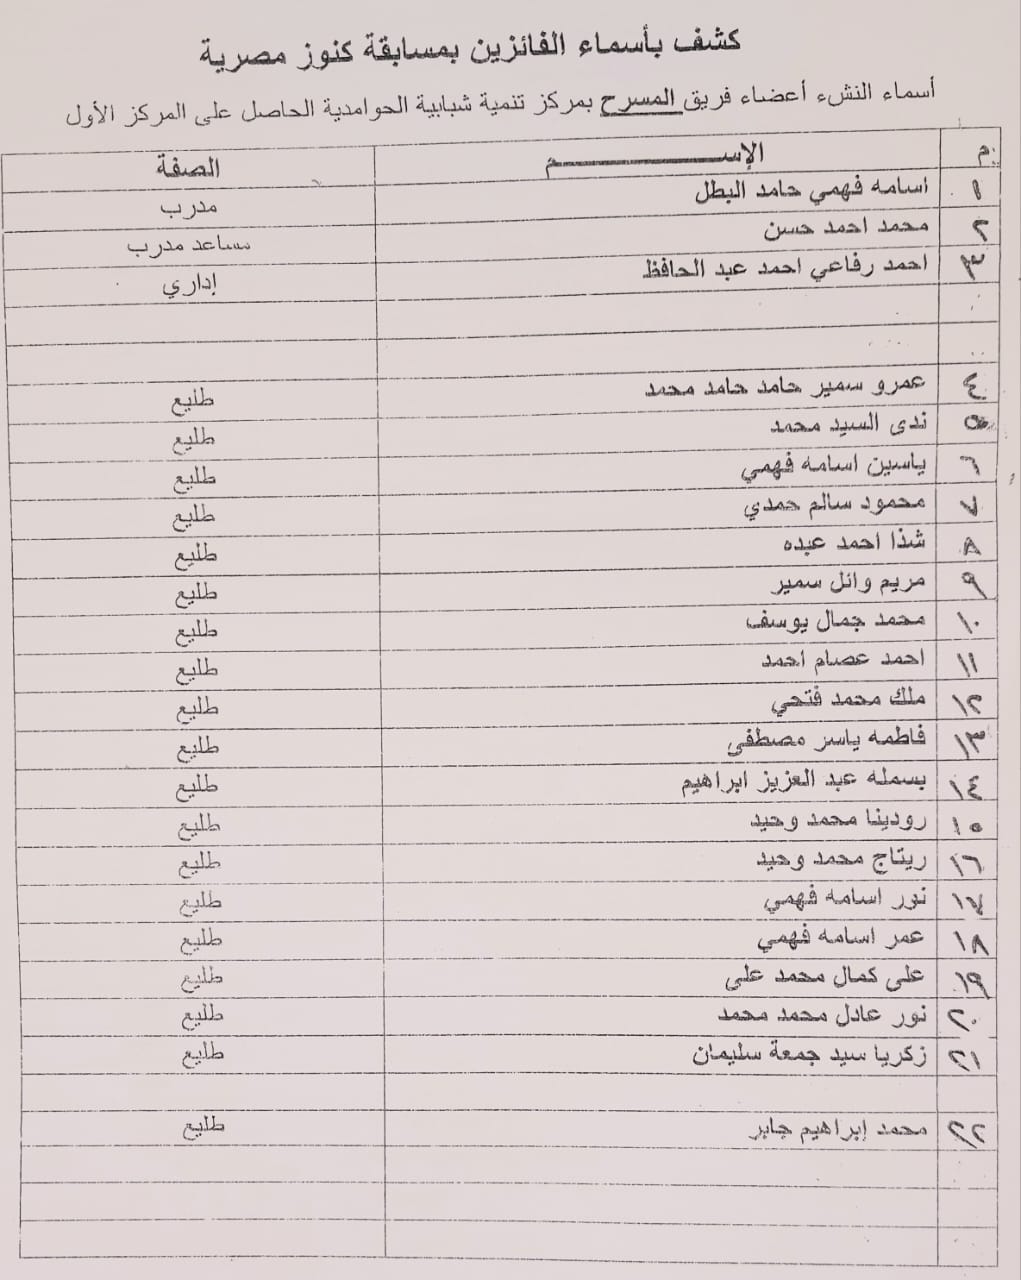 كشف بأسماء الفائزين بمسابقة كنوز مصرية
أسماء النشء أعضاء فريق المسرح بمركز تنمية شبابية الحوامدية الحاصل على المركز الأول
م الإســـــــم الصفة
١ اسامه فهمي حامد البطل مدرب
٢ محمد احمد حسن مساعد مدرب
٣ احمد رفاعي احمد عبد الحافظ إداري
٤ عمرو سمير حامد حامد محمد طليع
٥ ندى السيد محمد طليع
٦ ياسين اسامه فهمي طليع
٧ محمود سالم حمدي طليع
٨ شذا احمد عبده طليع
٩ مريم وائل سمير طليع
١٠ محمد جمال يوسف طليع
١١ احمد عصام احمد طليع
١٢ ملك محمد فتحي طليع
١٣ فاطمه ياسر مصطفى طليع
١٤ بسمله عبد العزيز ابراهيم طليع
١٥ رودينا محمد وحيد طليع
١٦ ريتاج محمد وحيد طليع
١٧ نور اسامه فهمي طليع
١٨ عمر اسامه فهمي طليع
١٩ على كمال محمد على طليع
٢٠ نور عادل محمد محمد طليع
٢١ زكريا سيد جمعة سليمان طليع
٢٢ محمد إبراهيم جابر طليع